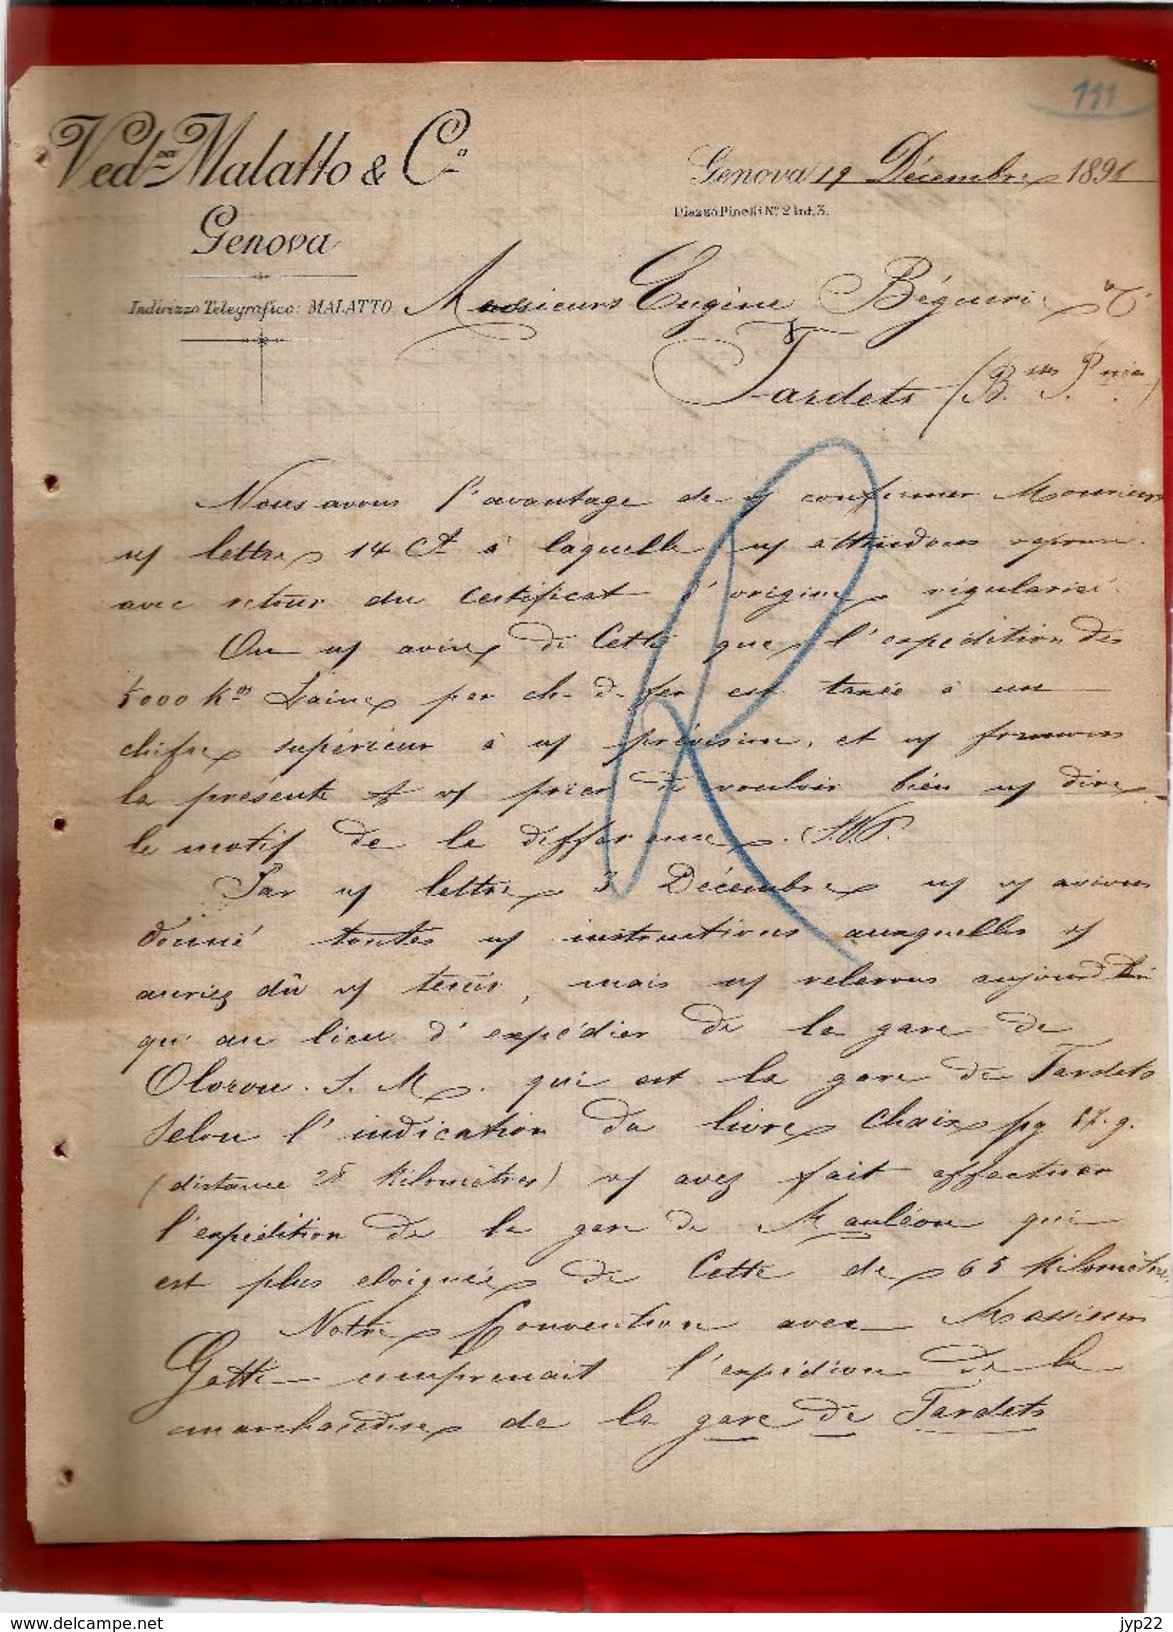 111
Ved.va Malatto & C.o
Genova 19 Décembre 1896
Piazza Pinelli N.o 2 int. 3.
Genova
Indirizzo Telegrafico: MALATTO
Messieurs Eugène Béguerie & C.
Tardets (B.ses P.nées)
Nous avons l'avantage de confirmer Messieurs
lettre 14 Ct à laquelle attendons réponse
avec retour du certificat d'origine régularisé.
On avise de Cette que l'expédition des
5000 K.os Laine par ch. d. fer est taxée à un
chifre supérieur à prévision, et formons
la présente prier de vouloir bien dire
le motif de la différence. S.V.P.
Par lettre 3 Décembre avions
donné toutes instructions auxquelles
auriez dû tenir, mais relevons aujourd'hui
qu'au lieu d'expédier de la gare de
Oloron S. M. qui est la gare de Tardets
selon l'indication du livre Chaix pg
(distance 28 kilomètres) avez fait effectuer
l'expédition de la gare de Mauléon qui
est plus eloignée de Cette de 65 kilomètres.
Notre Convention avec Messieurs
Gatti comprenait l'expédion de la
marchandise de la gare de Tardets
delcampe.net
jyp22